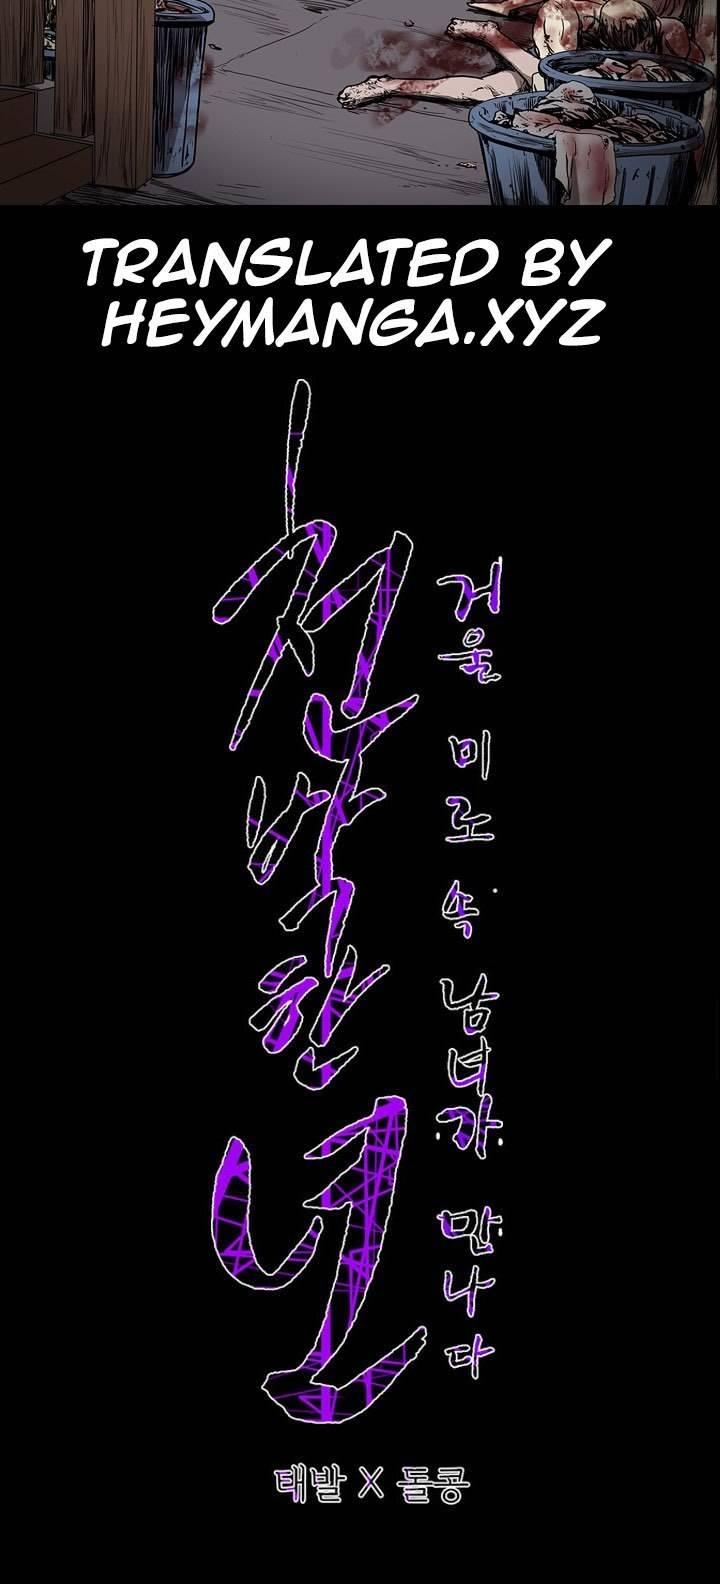 TRANSLATED BY
HEYMANGA.XYZ
천박한년
거울 미로 속 남녀가 만나다
태발 X 돌콩